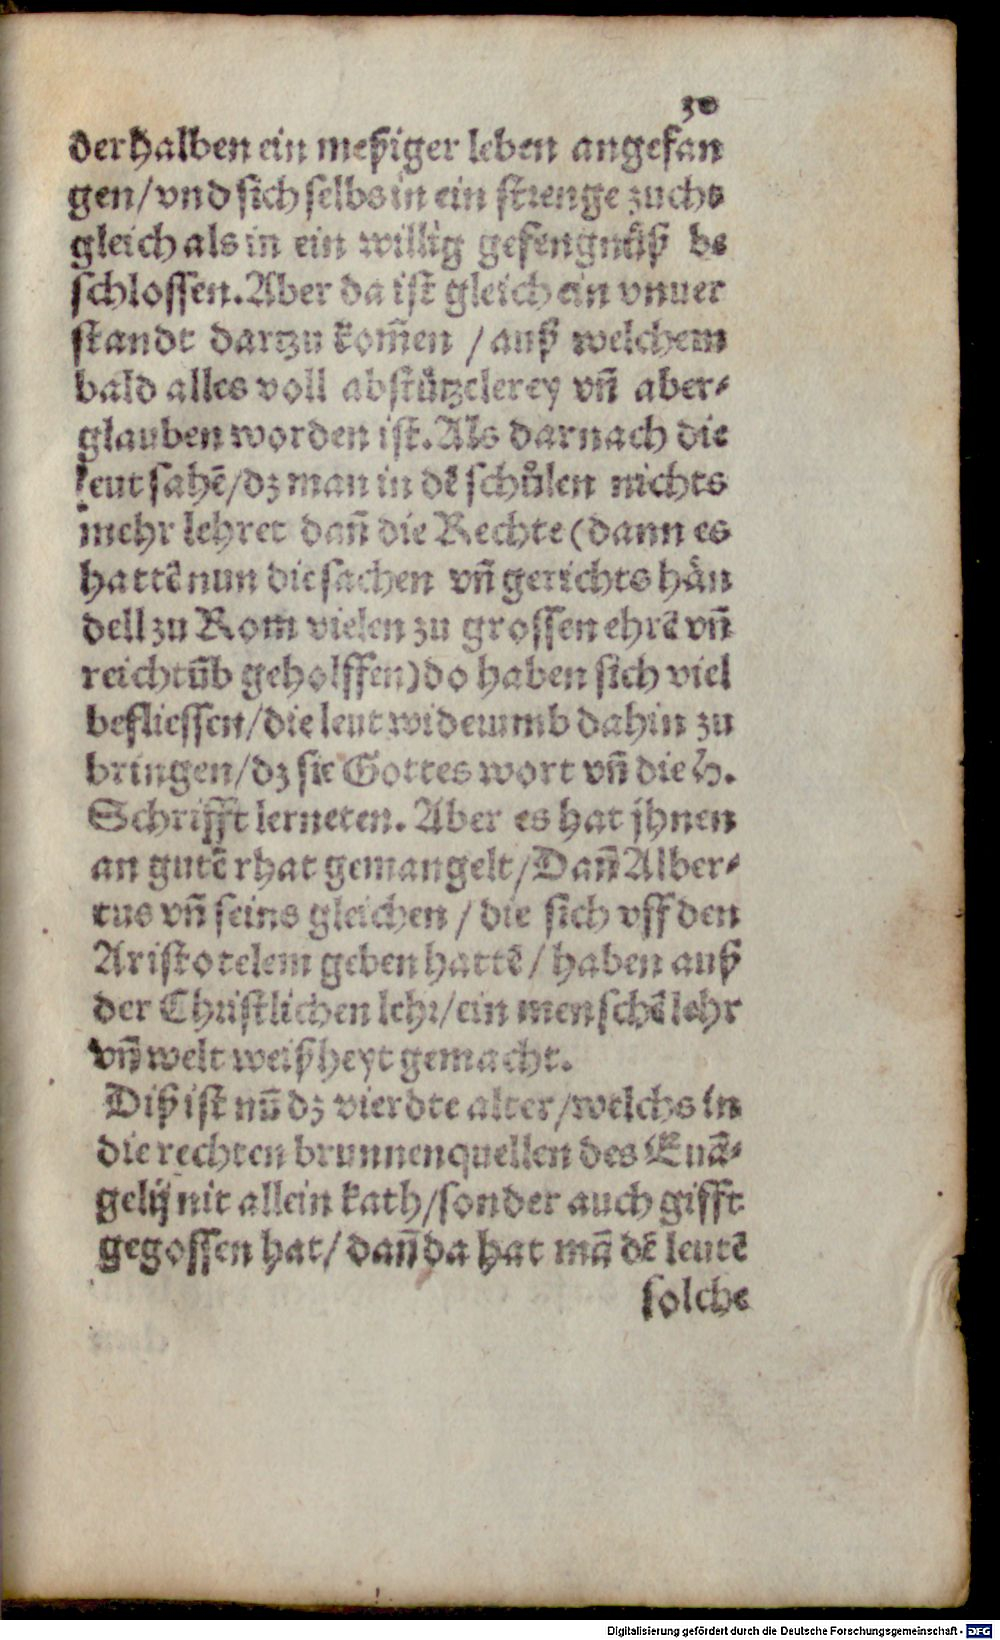 30
derhalben ein meßiger leben angefan
gen/vnd sich selbs in ein strenge zucht
gleich als in ein willig gefengnüß be
schlossen. Aber da ist gleich ein vnuer
standt dartzu kom̃en /auß welchem
bald alles voll abstützelerey vñ aber-
glauben worden ist. Als darnach die
leut sahẽ/dz man in dẽ schůlen nichts
mehr lehret dañ die Rechte (dann es
hattẽ nun die sachen vñ gerichts hän
dell zu Rom vielen zu grossen ehrẽ vñ
reichtũb geholffen) do haben sich viel
befliessen/die leut widerumb dahin zu
bringen/dz sie Gottes wort vñ die h.
Schrifft lerneten. Aber es hat jhnen
an gutẽ rhat gemangelt/Dañ Alber-
tus vñ seins gleichen / die sich vff den
Aristotelem geben hattẽ/ haben auß
der Christlichen lehr/ein menschẽ lehr
vñ welt weißheyt gemacht.
Diß ist nũ dz vierdte alter/welchs in
die rechten brunnenquellen des Euã-
gelij nit allein kath/sonder auch gifft
gegossen hat/ dañ da hat mã dẽ leutẽ
solche
Digitalisierung gefördert durch die Deutsche Forschungsgemeinschaft - DFG